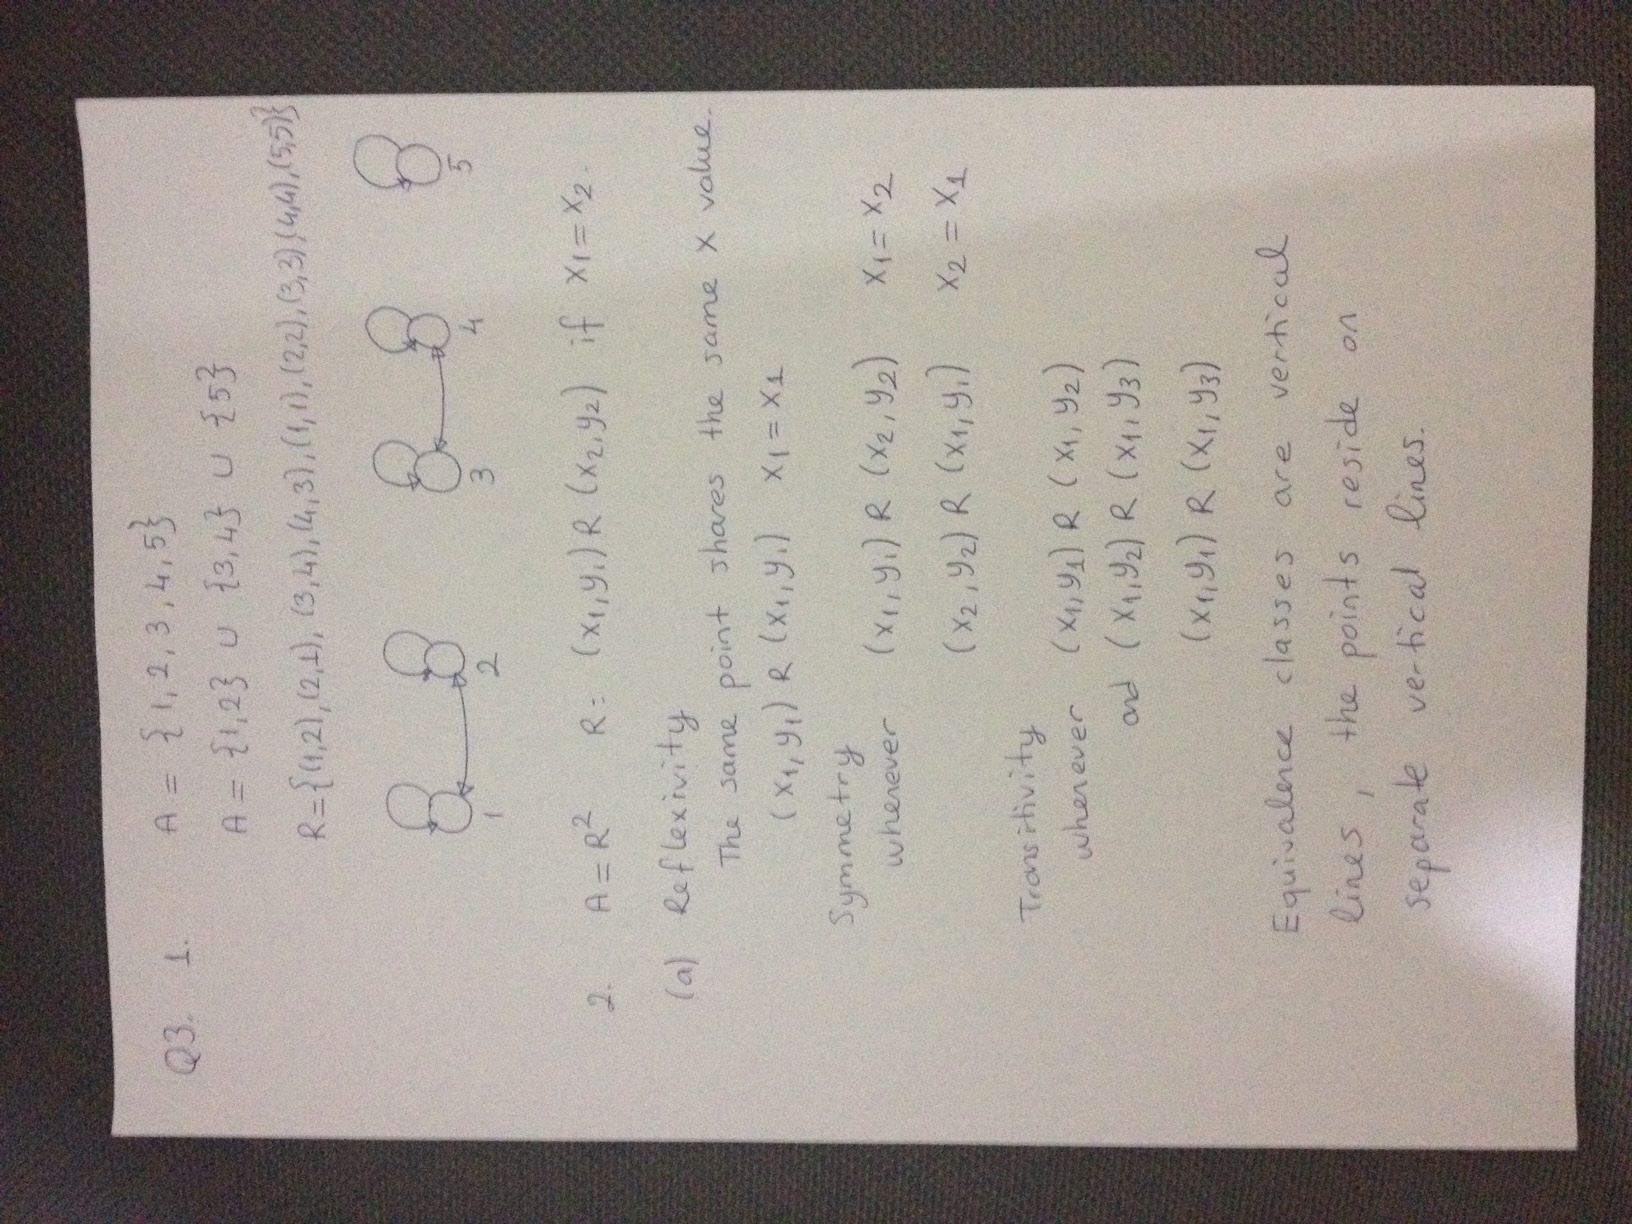 Q3. 1. A = {1, 2, 3, 4, 5}
A = {1,2} ∪ {3,4} ∪ {5}
R={(1,2),(2,1), (3,4),(4,3),(1,1),(2,2),(3,3),(4,4),(5,5)}
1 2 3 4 5
2. A = R² R: (x₁,y₁) R (x₂,y₂) if x₁=x₂.
(a) Reflexivity
The same point shares the same x value.
(x₁,y₁) R (x₁,y₁) x₁ = x₁
Symmetry
whenever (x₁,y₁) R (x₂,y₂) x₁= x₂
(x₂,y₂) R (x₁,y₁) x₂ = x₁
Transitivity
whenever (x₁,y₁) R (x₁,y₂)
and (x₁,y₂) R (x₁,y₃)
(x₁,y₁) R (x₁,y₃)
Equivalence classes are vertical
lines, the points reside on
separate vertical lines.